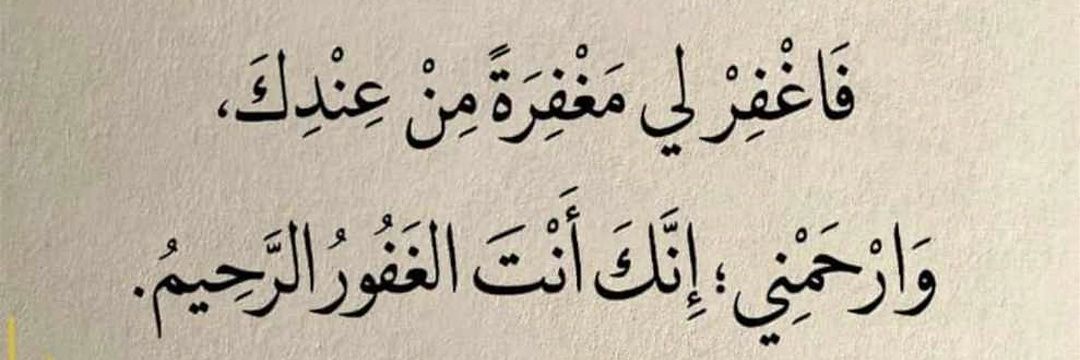 فَاغْفِرْ لي مَغْفِرَةً مِنْ عِنْدِكَ،
وَارْحَمْنِي؛ إِنَّكَ أَنْتَ الغَفُورُ الرَّحِيمُ.